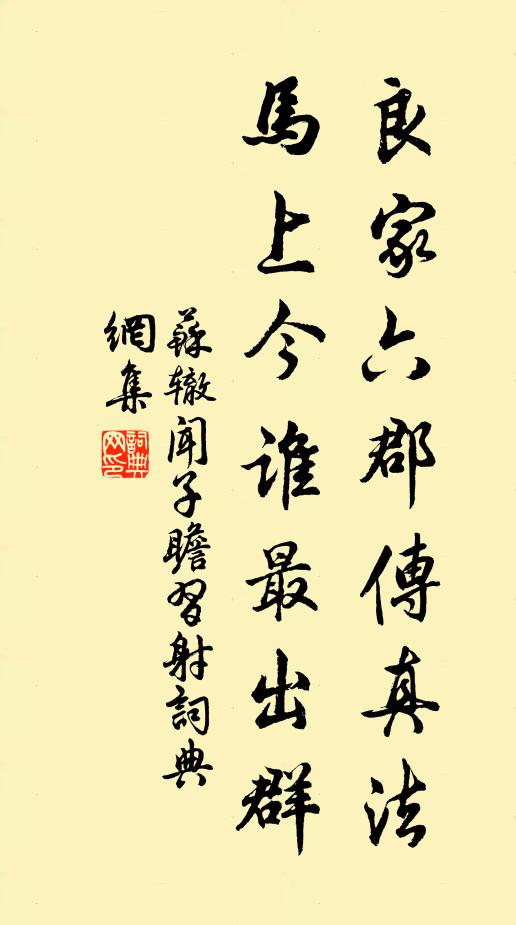 良家六郡傳真法
馬上今誰最出群
蘇辙聞子瞻習射詞典
網集
詞典
网印